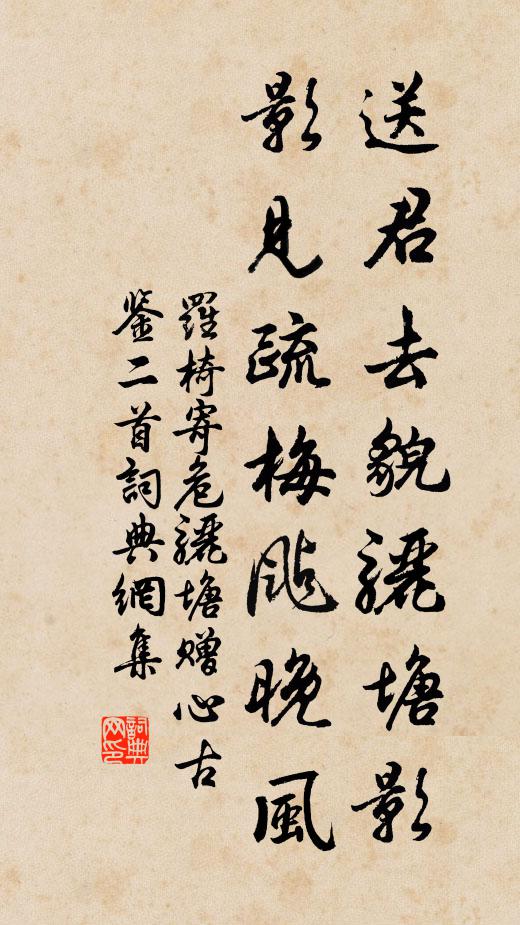 送君去貌驪塘影
影見疏梅颭晚風
羅椅寄危驪塘贈心古
鉴二首詞典網集
詞典网印